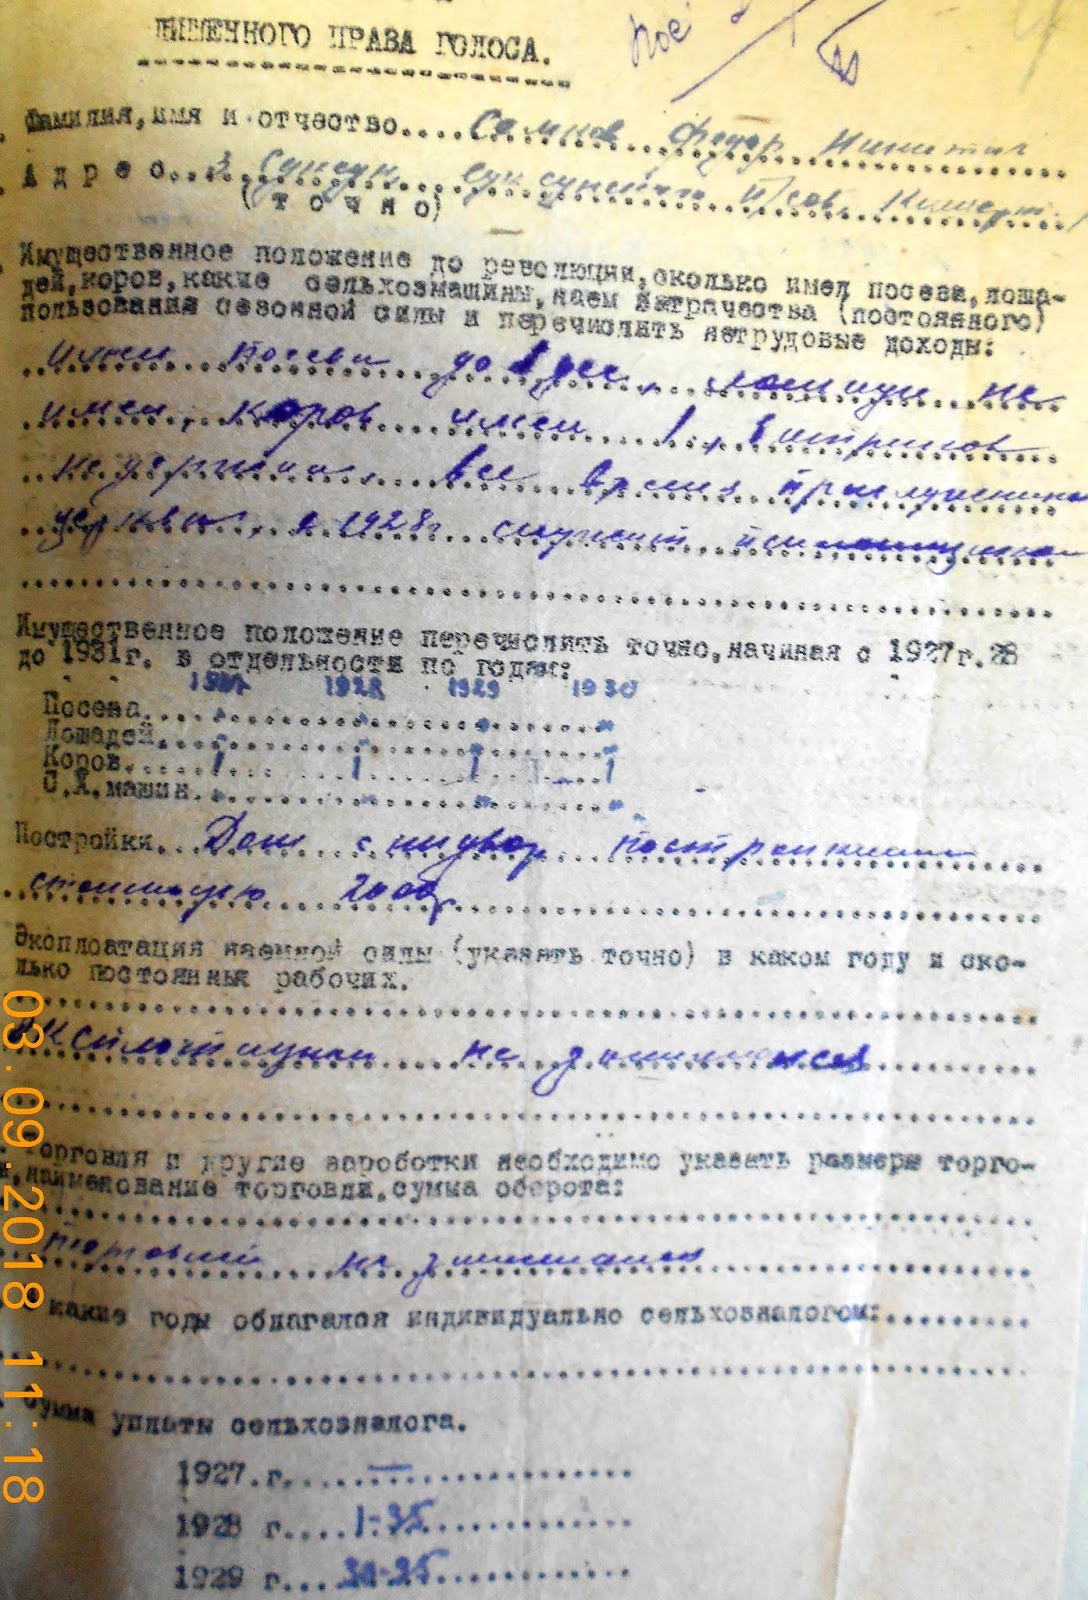 ЛИШЕННОГО ПРАВА ГОЛОСА.
Фамилия, имя и отчество.... Федор Никитич
Адрес.. З. Суксун
(точно)
Имущественное положение до революции, сколько имел посева, лоша-
дей, коров, какие сельхозмашины, наем батрачества (постоянного)
пользования сезонной силы и перечислить нетрудовые доходы:
Имел посева до 1 дес, лошади не
имел, коров имел 1, батраков
не держал, все время
церкви, с 1928г. служит
Имущественное положение перечислить точно, начиная с 1927г.28
до 1931г. в отдельности по годам:
1927 1928 1929 1930
Посева....
Лошадей....
Коров.... 1 1 1 1
С.Х.машин..
Постройки.. Дом с надвор постройками
стоимостью 200 р
Эксплоатация наемной силы (указать точно) в каком году и ско-
лько постоянных рабочих.
не занимался
Торговля и другие зароботки необходимо указать размеры торго-
и, наименование торговли, сумма оборота:
торговлей не занимался
какие годы облагался индивидуально сельхозналогом:.........
Сумма уплаты сельхозналога.
1927.г.... —
1928 г.... 1-35
1929 г...
03.09.2018 11:18